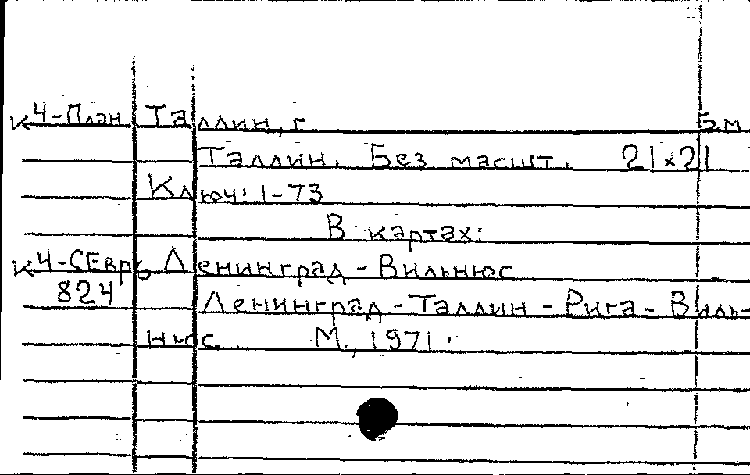 К4-План Таллин, г. Б.м.
Таллин. Без масшт. 21х21
Ключ: 1-73
В картах:
К4-СЕвр Ленинград - Вильнюс
824 Ленинград - Таллин - Рига - Виль-
нюс. М., 1971.